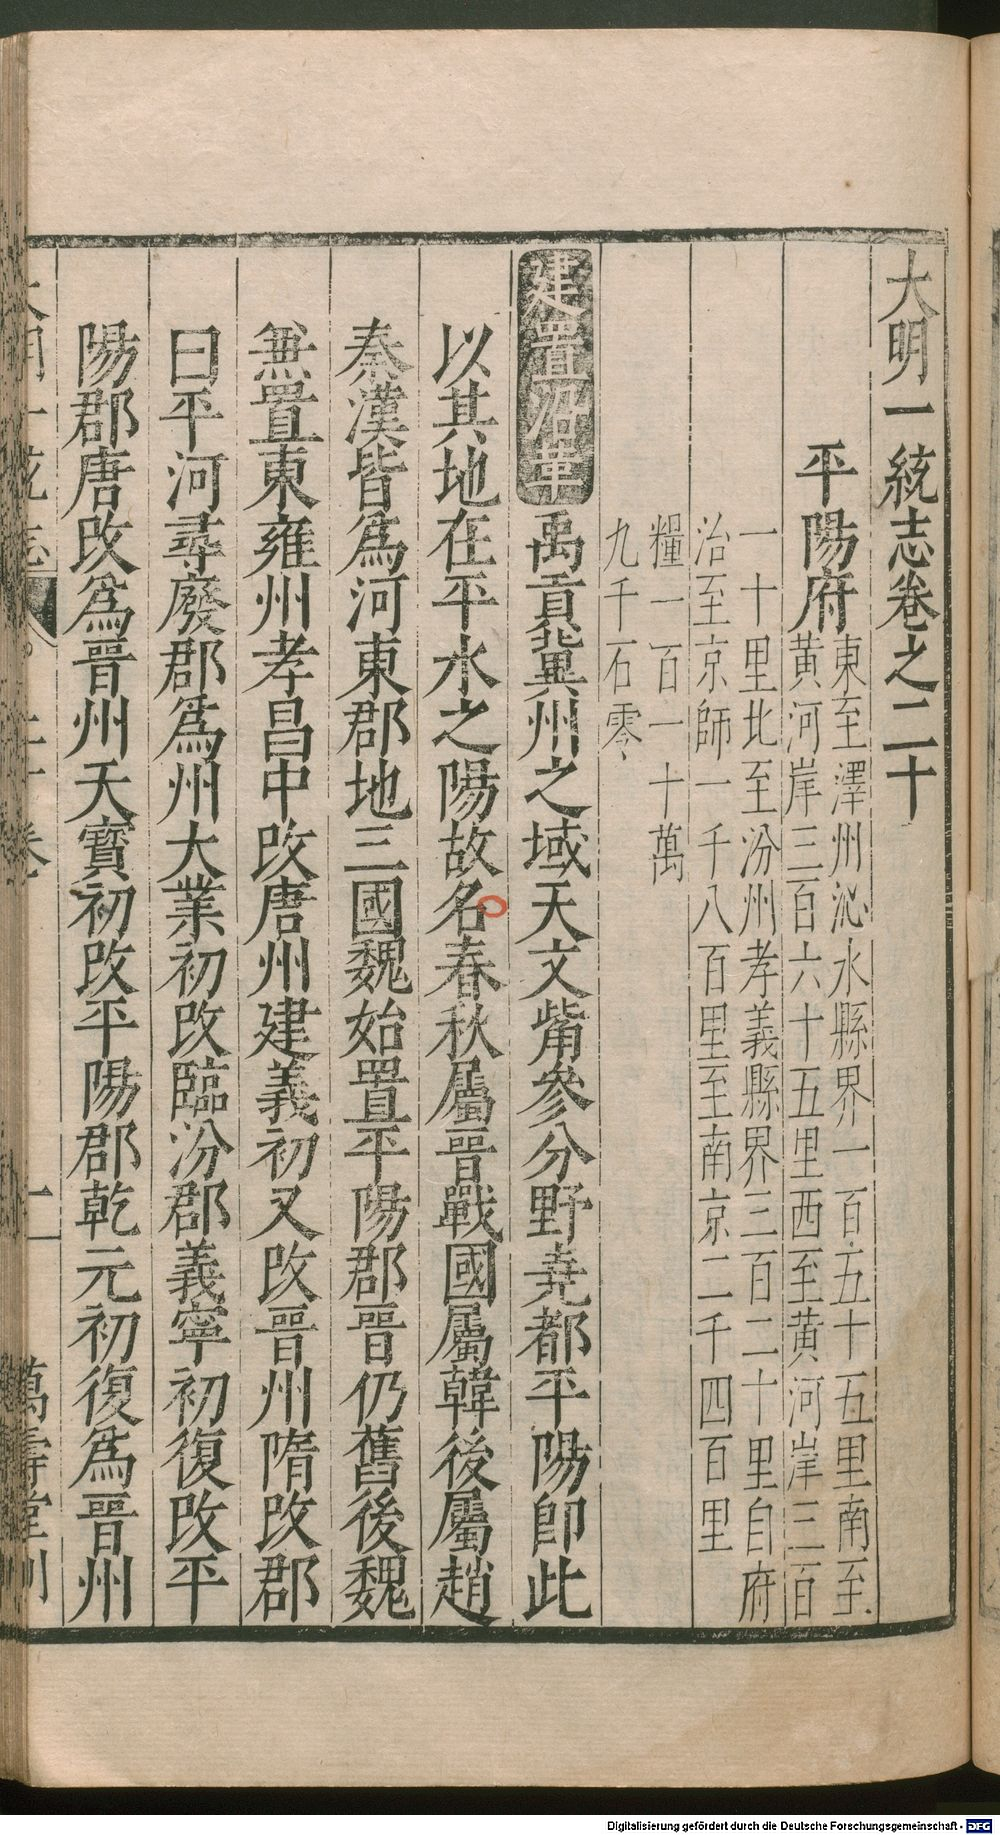 大明一統志卷之二十
平陽府
東至澤州沁水縣界一百五十五里南至
黃河岸三百六十五里西至黃河岸三百
一十里北至汾州孝義縣界三百二十里自府
治至京師一千八百里至南京二千四百里
糧一百一十萬
九千石零
建置沿革
禹貢冀州之域天文觜參分野堯都平陽卽此
以其地在平水之陽故名春秋屬晉戰國屬韓後屬趙
秦漢皆爲河東郡地三國魏始置平陽郡晉仍舊後魏
兼置東雍州孝昌中改唐州建義初又改晉州隋改郡
曰平河尋廢郡爲州大業初改臨汾郡義寧初復改平
陽郡唐改爲晉州天寶初改平陽郡乾元初復爲晉州
Digitalisierung gefördert durch die Deutsche Forschungsgemeinschaft - DFG